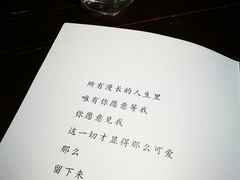 所有漫长的人生里
唯有你愿意等我
你愿意见我
这一切才显得那么可爱
那么
留下来